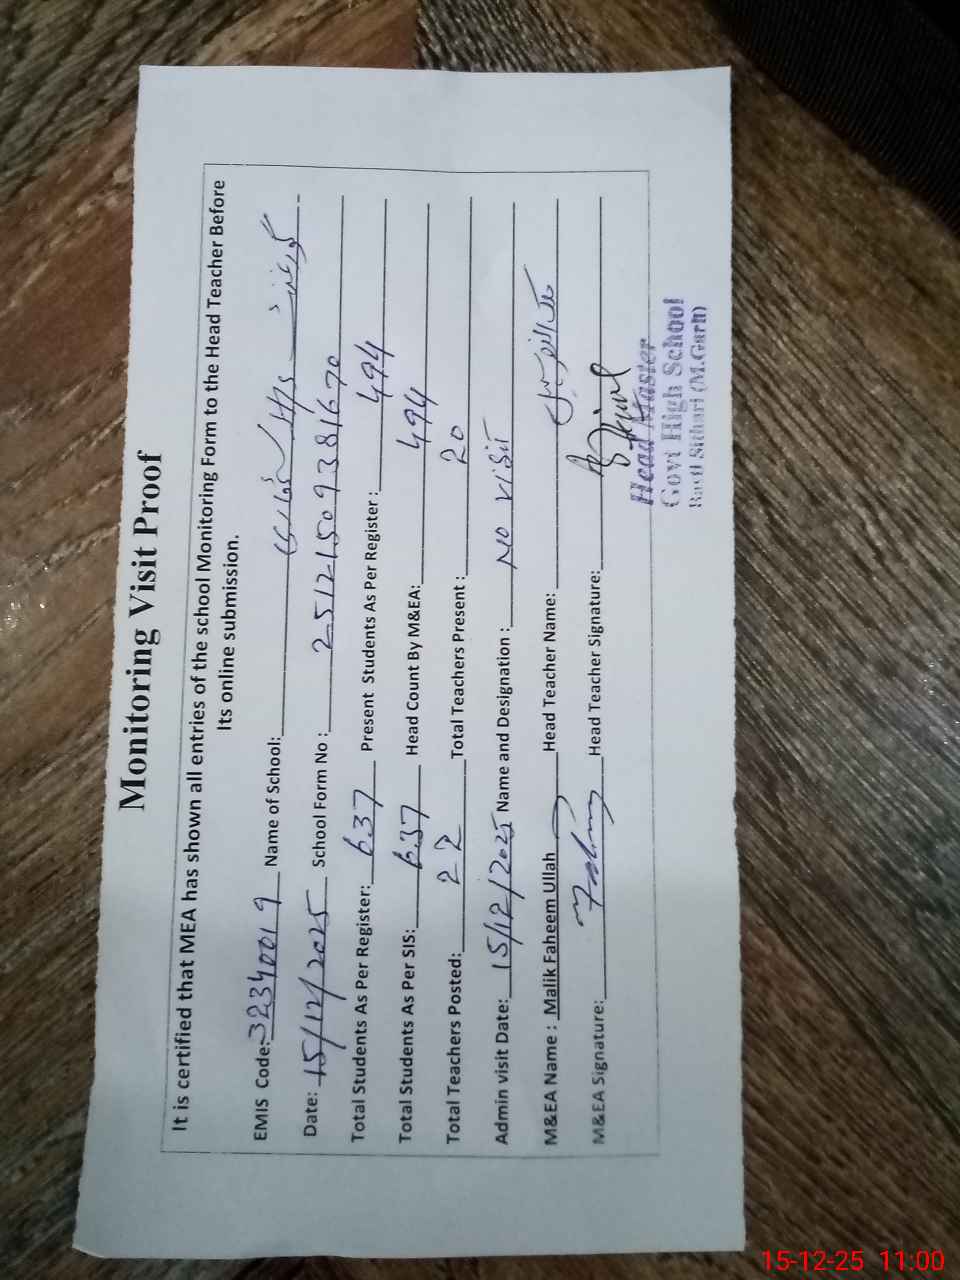 Monitoring Visit Proof
It is certified that MEA has shown all entries of the school Monitoring Form to the Head Teacher Before
Its online submission.
EMIS Code: 32340019 Name of School:
Date: 15/12/2025 School Form No : 25121509381670
Total Students As Per Register: 637 Present Students As Per Register : 494
Total Students As Per SIS: 637 Head Count By M&EA: 494
Total Teachers Posted: 22 Total Teachers Present : 20
Admin visit Date: 15/12/2025 Name and Designation : NO visit
M&EA Name : Malik Faheem Ullah Head Teacher Name:
M&EA Signature: Head Teacher Signature:
Head Master
Govt High School
Basti (M.Garh)
15-12-25 11:00